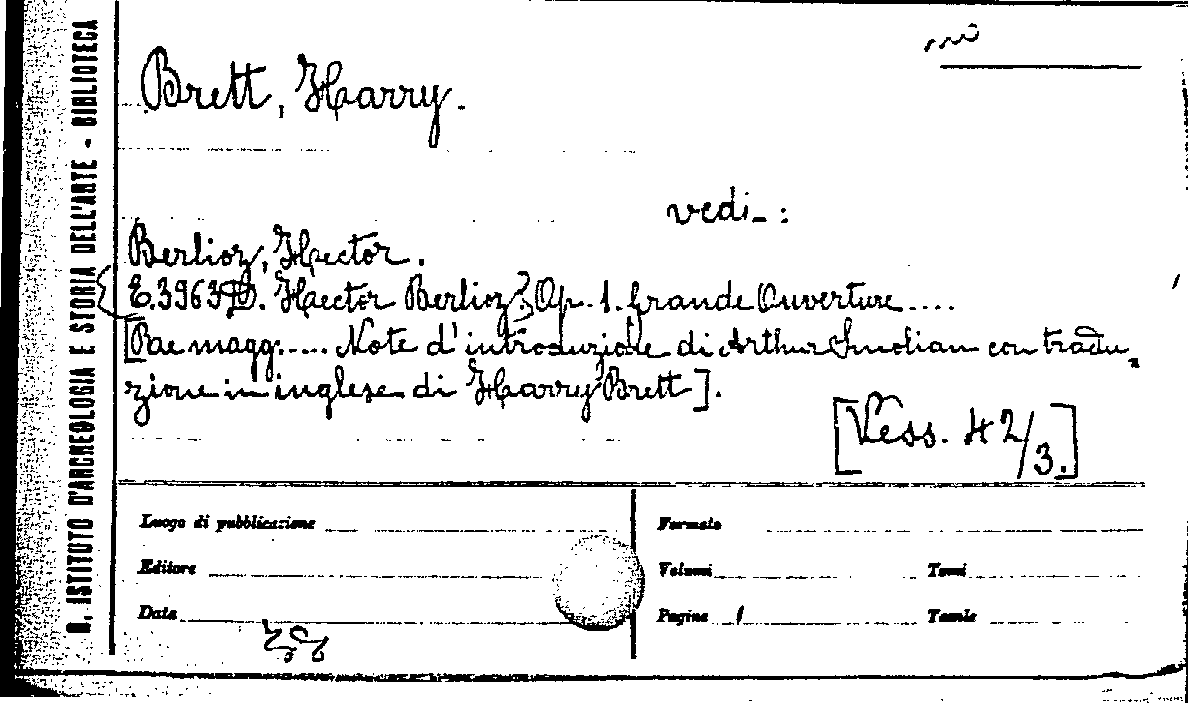 R. ISTITUTO D'ARCHEOLOGIA E STORIA DELL'ARTE - BIBLIOTECA
Brett, Harry.
vedi :
Berlioz, Hector.
Hector Berlioz Op. 1. Grande Ouverture....
magg..... Note d'introduzione di Arthur Smolian con tradu
zione in inglese di Harry Brett].
[Vess. 42/3.]
Luogo di pubblicazione
Formato
Editore
Volumi
Tomi
Data
Pagine
Tavole